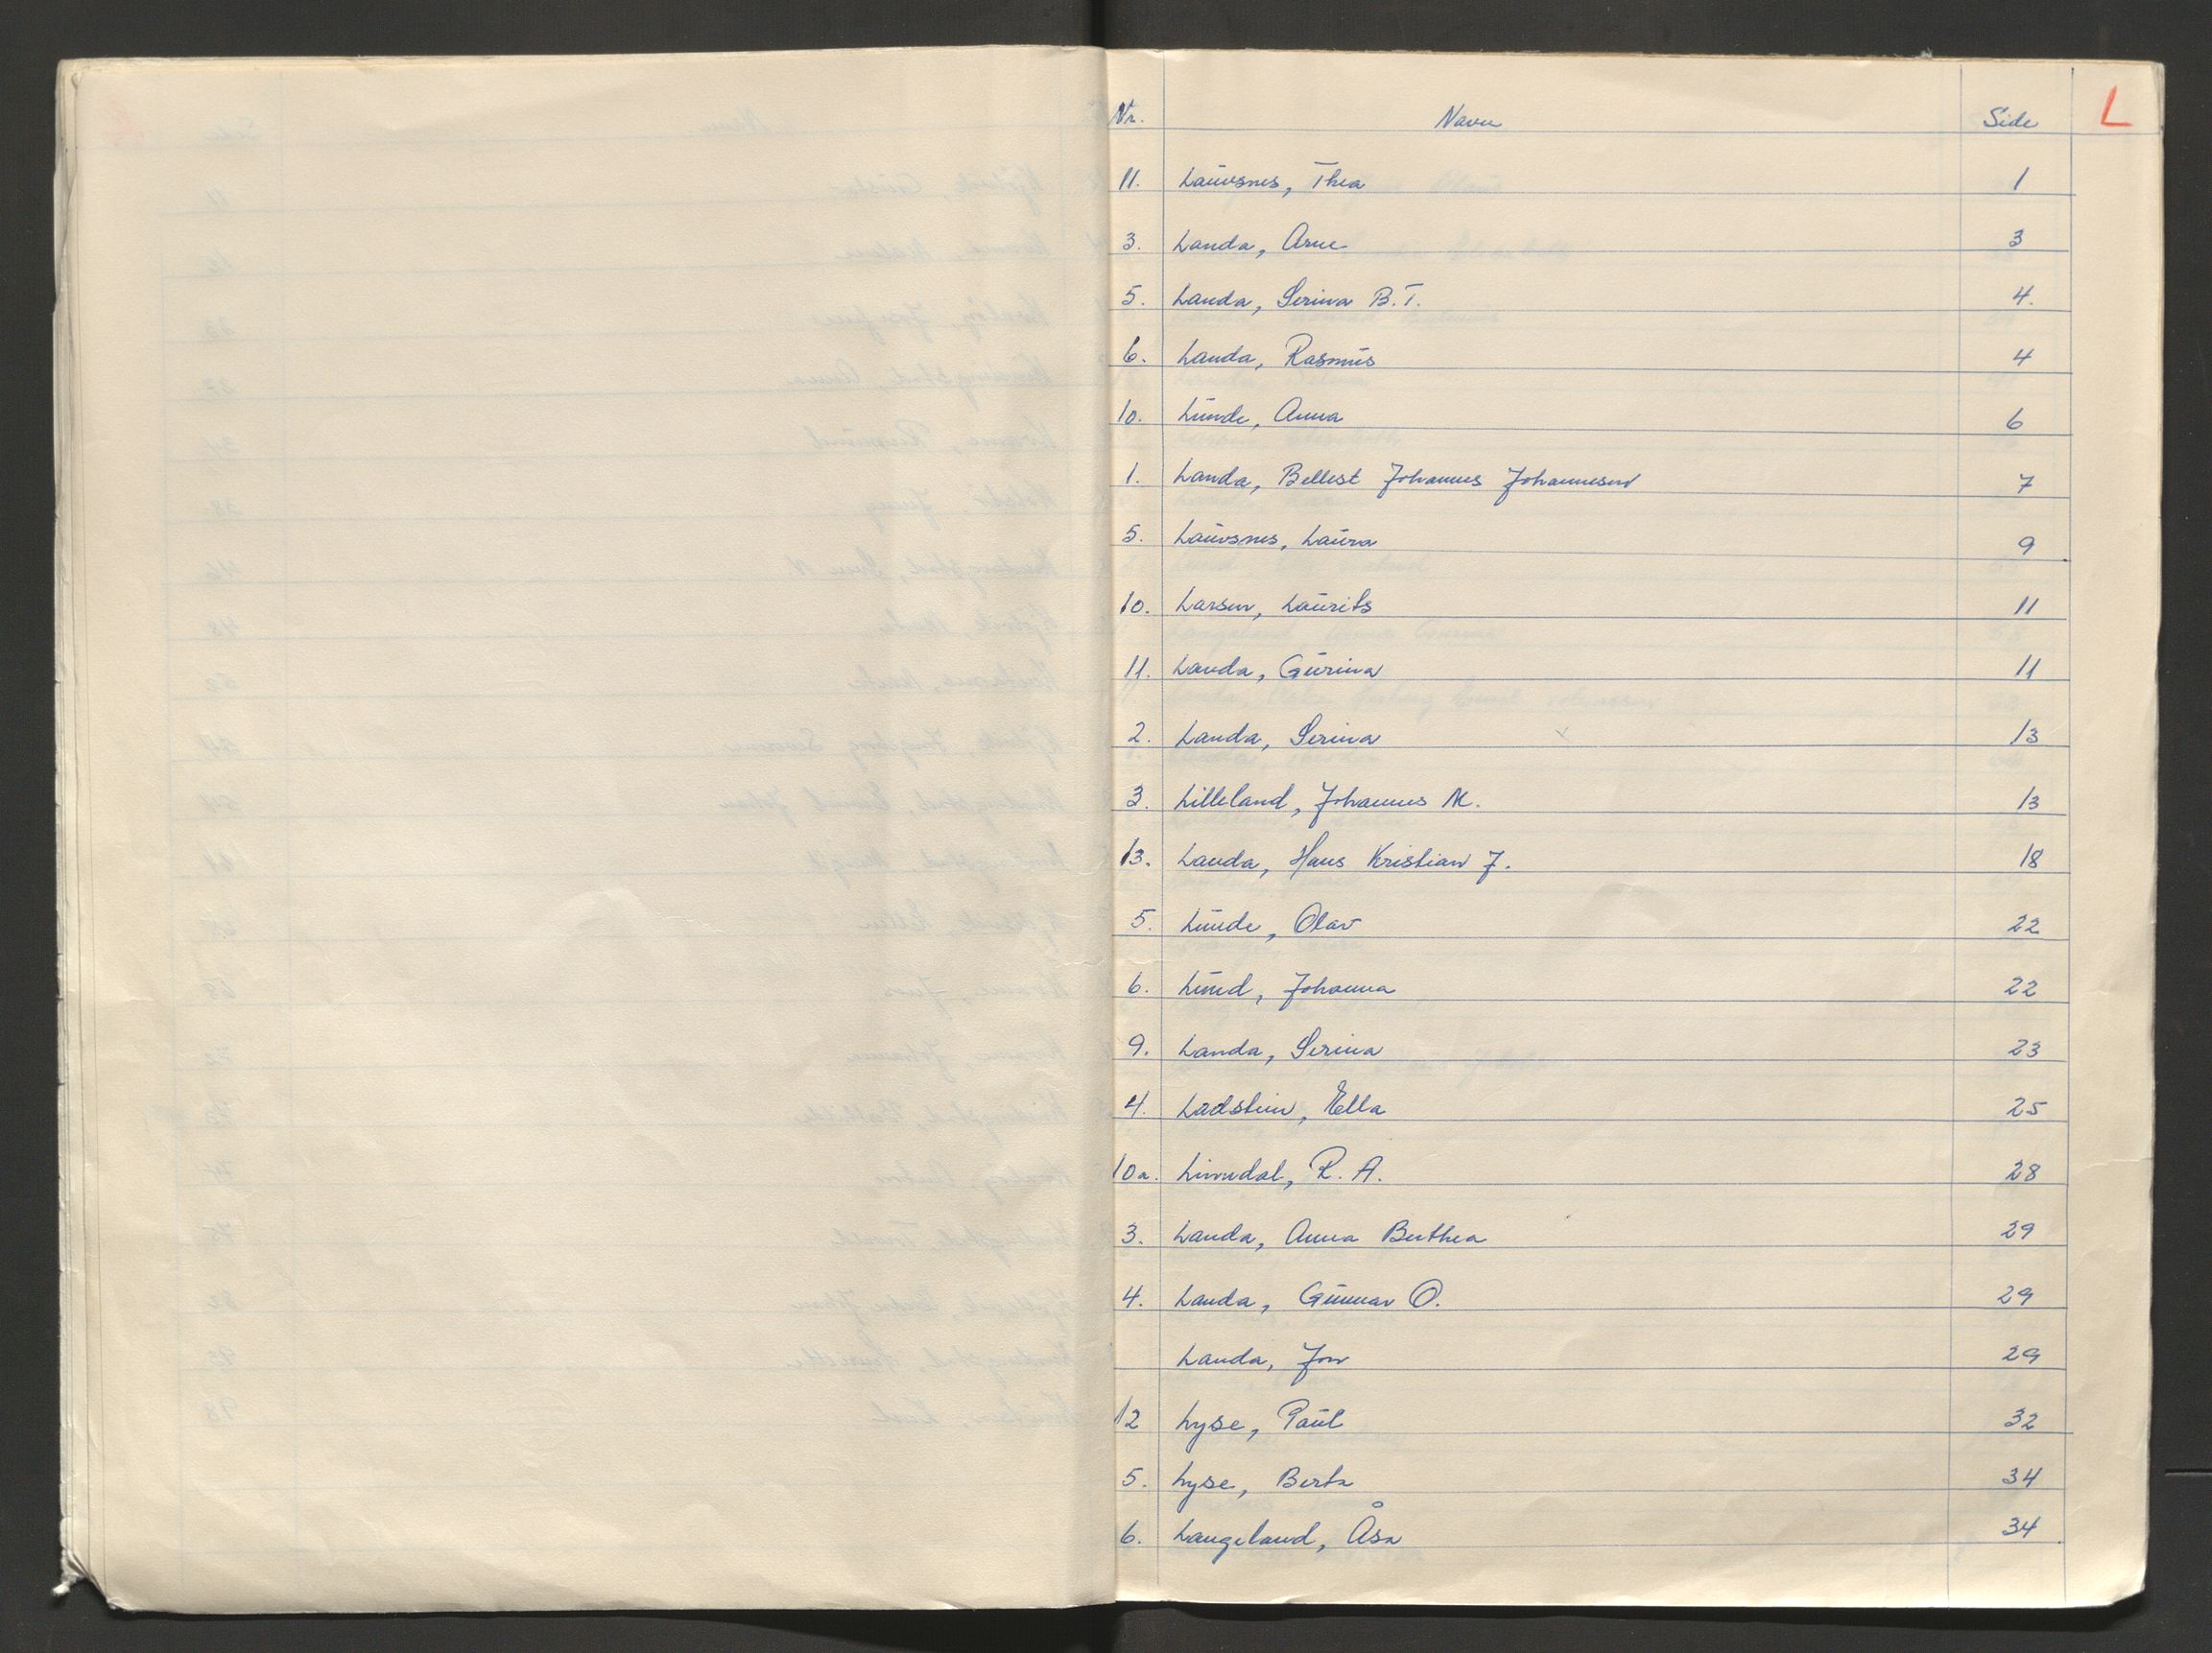 Nr. Navn Side L
11. Lauvsnes, Thea 1
3. Landa, Arne 3
5. Landa, Serina B.T. 4.
6. Landa, Rasmus 4
10. Lunde, Anna 6
1. Landa, Bellest Johannes Johannesen 7
5. Lauvsnes, Laura 9
10. Larsen, Laurits 11
11. Landa, Gurina 11
2. Landa, Serina 13
3. Lilleland, Johannes M. 13
13. Landa, Hans Kristian J. 18
5. Lunde, Olav 22
6. Lund, Johanna 22
9. Landa, Serina 23
4. Ladstein, Ella 25
10a. R. A. 28
3. Landa, Anna Berthea 29
4. Landa, Gunnar O. 29
Landa, Jon 29
12 Lyse, Paul 32
5. Lyse, Berta 34
6. Langeland, Åsa 34